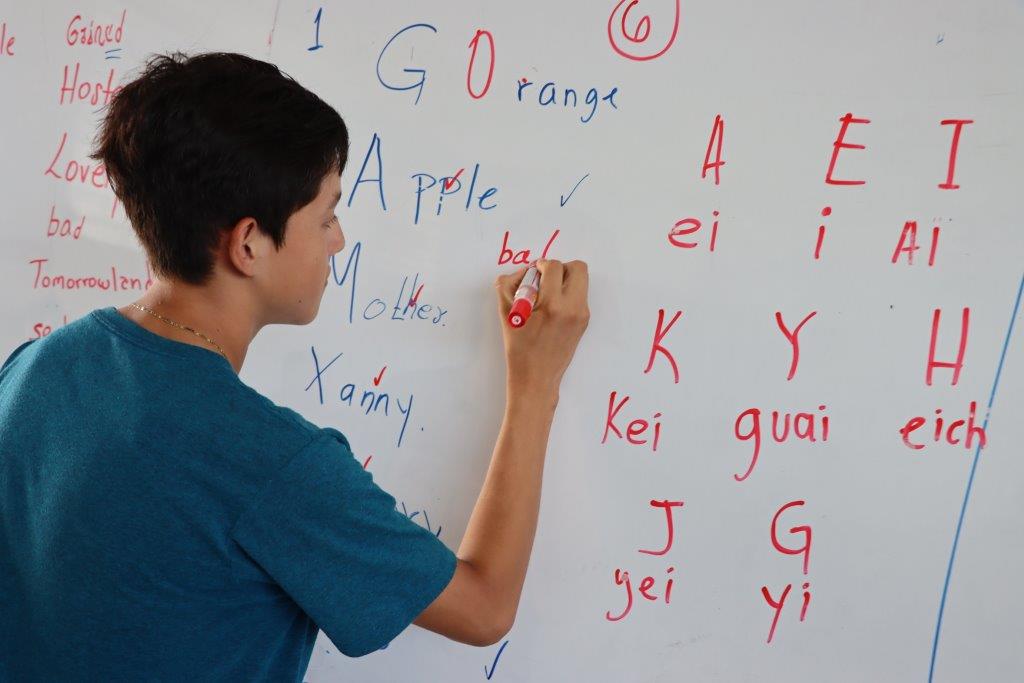 Gained
Love
bad
Tomorrowland
1 G Orange
6
Apple
ba
Mother.
Xanny.
A E I
ei i Aï
K Y H
Kei guai eich
J G
yei yi